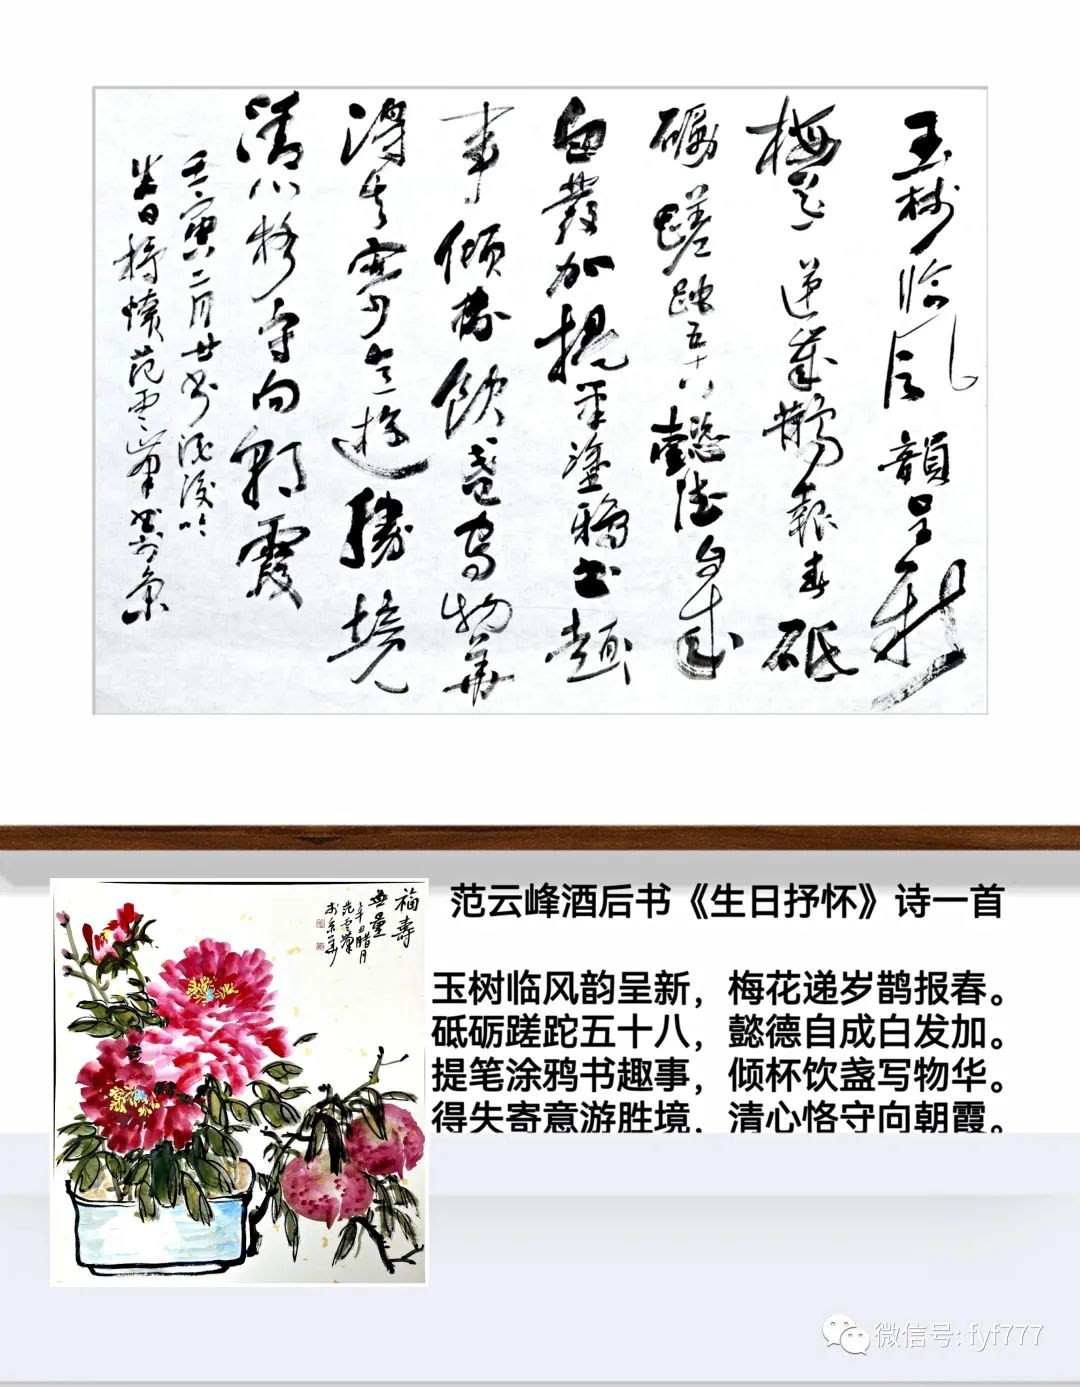 玉树临风韻呈新
梅花递岁鹊報春砥
砺蹉跎五十八懿德自成
白發加提笔塗鸦书趣
事倾杯饮盏写物华
得失寄意遊勝境
清心恪守向朝霞
壬寅二月廿 酒後吟
生日抒懷范雲峰书於京
范云峰酒后书《生日抒怀》诗一首
玉树临风韵呈新，梅花递岁鹊报春。
砥砺蹉跎五十八，懿德自成白发加。
提笔涂鸦书趣事，倾杯饮盏写物华。
得失寄意游胜境，清心恪守向朝霞。
福壽
無量
辛丑腊月
范雲峰
於京華
微信号: fyf777